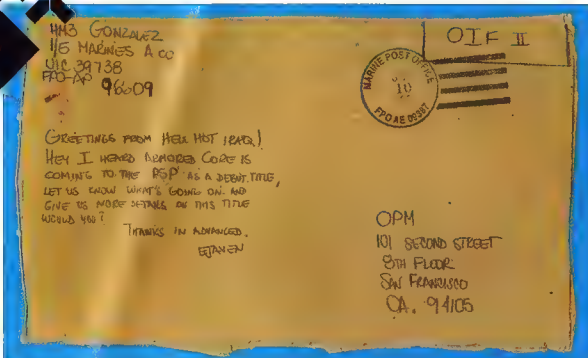 HM3 GONZALEZ
1/5 MARINES A CO
UIC 39738
FPO-AP 96609
OIF II
MARINE POST OFFICE
10
FPO AE 09387
GREETINGS FROM HELL HOT IRAQ!
HEY I HEARD ARMORED CORE IS
COMING TO THE PSP AS A DEBUT TITLE,
LET US KNOW WHAT'S GOING ON AND
GIVE US MORE DETAILS ON THIS TITLE
WOULD YOU?
THANKS IN ADVANCED.
OPM
101 SECOND STREET
8TH FLOOR
SAN FRANCISCO
CA. 94105